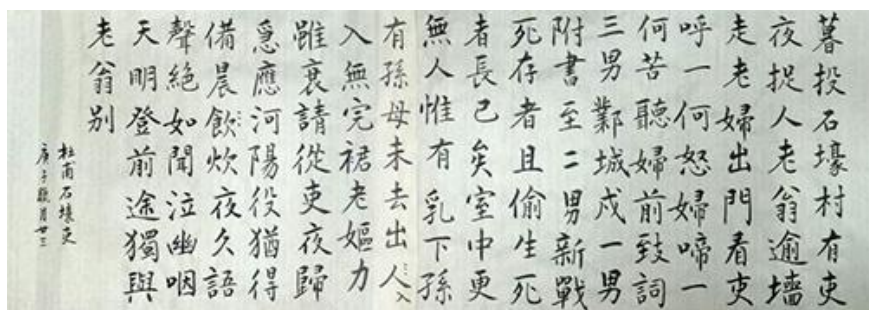 暮投石壕村有吏
夜捉人老翁逾墻
走老婦出門看吏
呼一何怒婦啼一
何苦聽婦前致詞
三男鄴城戍一男
附書至二男新戰
死存者且偷生死
者長已矣室中更
無人惟有乳下孫
有孫母未去出人入
入無完裙老嫗力
雖衰請從吏夜歸
急應河陽役猶得
備晨飲炊夜久語
聲絕如聞泣幽咽
天明登前途獨與
老翁別
杜甫石壕吏
庚子臘月廿三